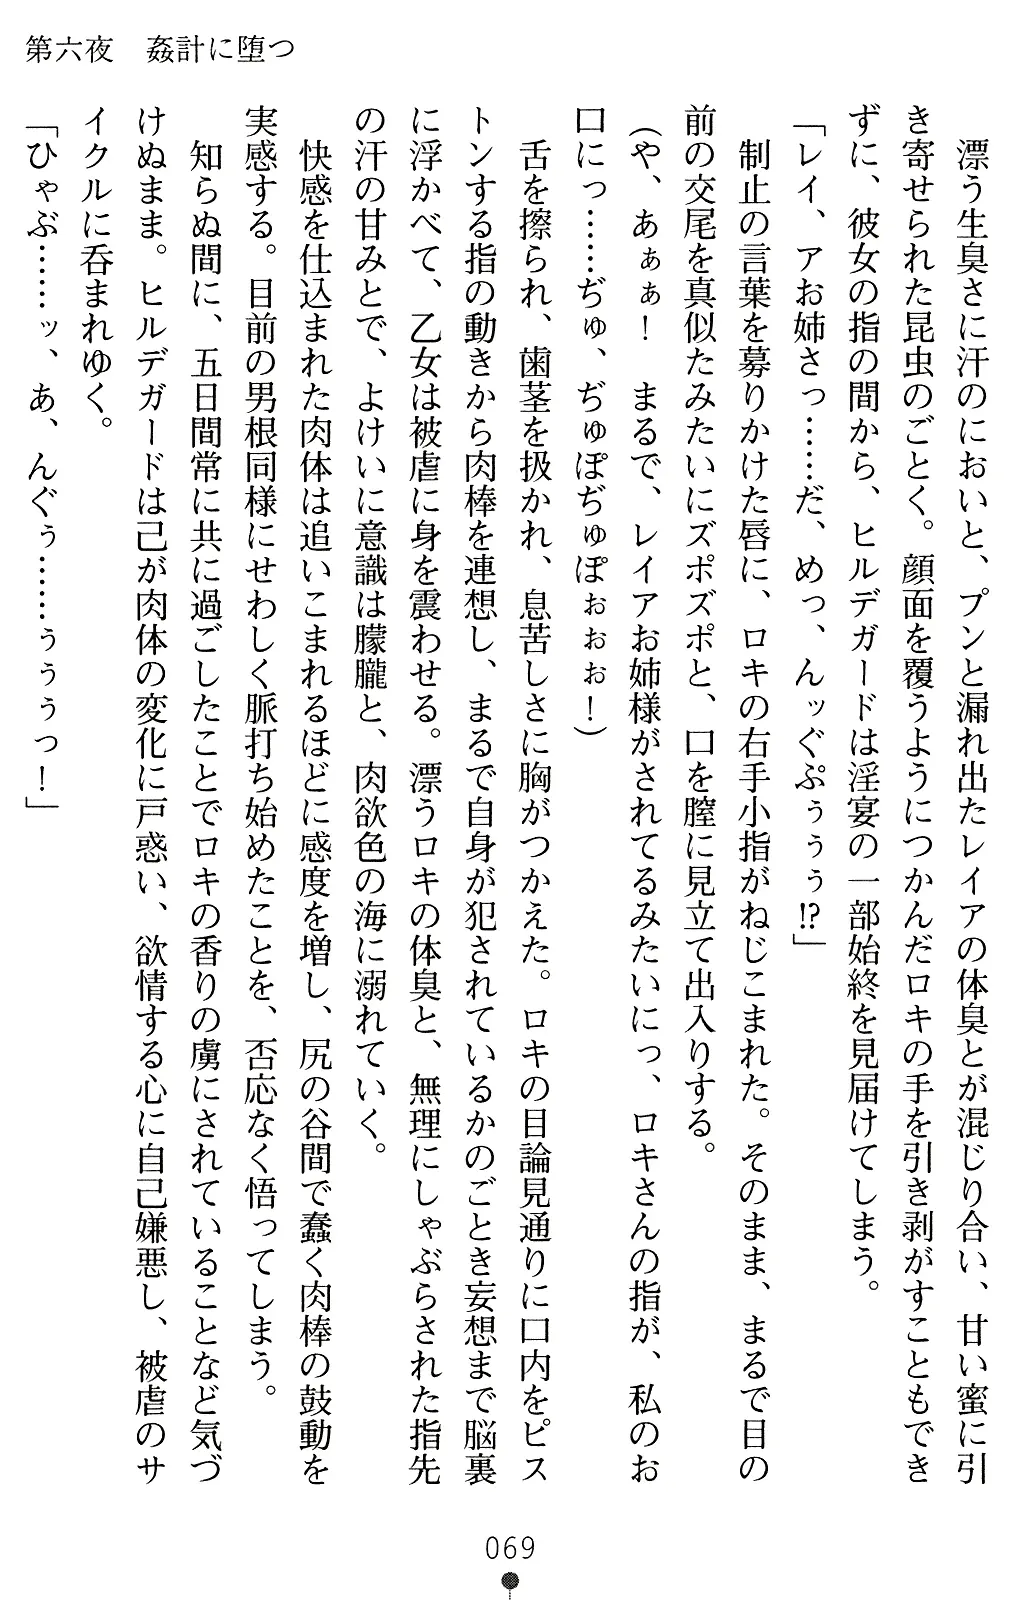 第六夜　姦計に堕つ
　漂う生臭さに汗のにおいと、プンと漏れ出たレイアの体臭とが混じり合い、甘い蜜に引
き寄せられた昆虫のごとく。顔面を覆うようにつかんだロキの手を引き剥がすこともでき
ずに、彼女の指の間から、ヒルデガードは淫宴の一部始終を見届けてしまう。
「レイ、アお姉さっ……だ、めっ、んッぐぷぅぅぅ!?」
　制止の言葉を募りかけた唇に、ロキの右手小指がねじこまれた。そのまま、まるで目の
前の交尾を真似たみたいにズポズポと、口を膣に見立て出入りする。
（や、あぁぁ！　まるで、レイアお姉様がされてるみたいにっ、ロキさんの指が、私のお
口にっ……ぢゅ、ぢゅぽぢゅぽぉぉぉ！）
　舌を擦られ、歯茎を扱かれ、息苦しさに胸がつかえた。ロキの目論見通りに口内をピス
トンする指の動きから肉棒を連想し、まるで自身が犯されているかのごとき妄想まで脳裏
に浮かべて、乙女は被虐に身を震わせる。漂うロキの体臭と、無理にしゃぶらされた指先
の汗の甘みとで、よけいに意識は朦朧と、肉欲色の海に溺れていく。
　快感を仕込まれた肉体は追いこまれるほどに感度を増し、尻の谷間で蠢く肉棒の鼓動を
実感する。目前の男根同様にせわしく脈打ち始めたことを、否応なく悟ってしまう。
　知らぬ間に、五日間常に共に過ごしたことでロキの香りの虜にされていることなど気づ
けぬまま。ヒルデガードは己が肉体の変化に戸惑い、欲情する心に自己嫌悪し、被虐のサ
イクルに呑まれゆく。
「ひゃぶ……ッ、あ、んぐぅ……ぅぅぅっ！」
069